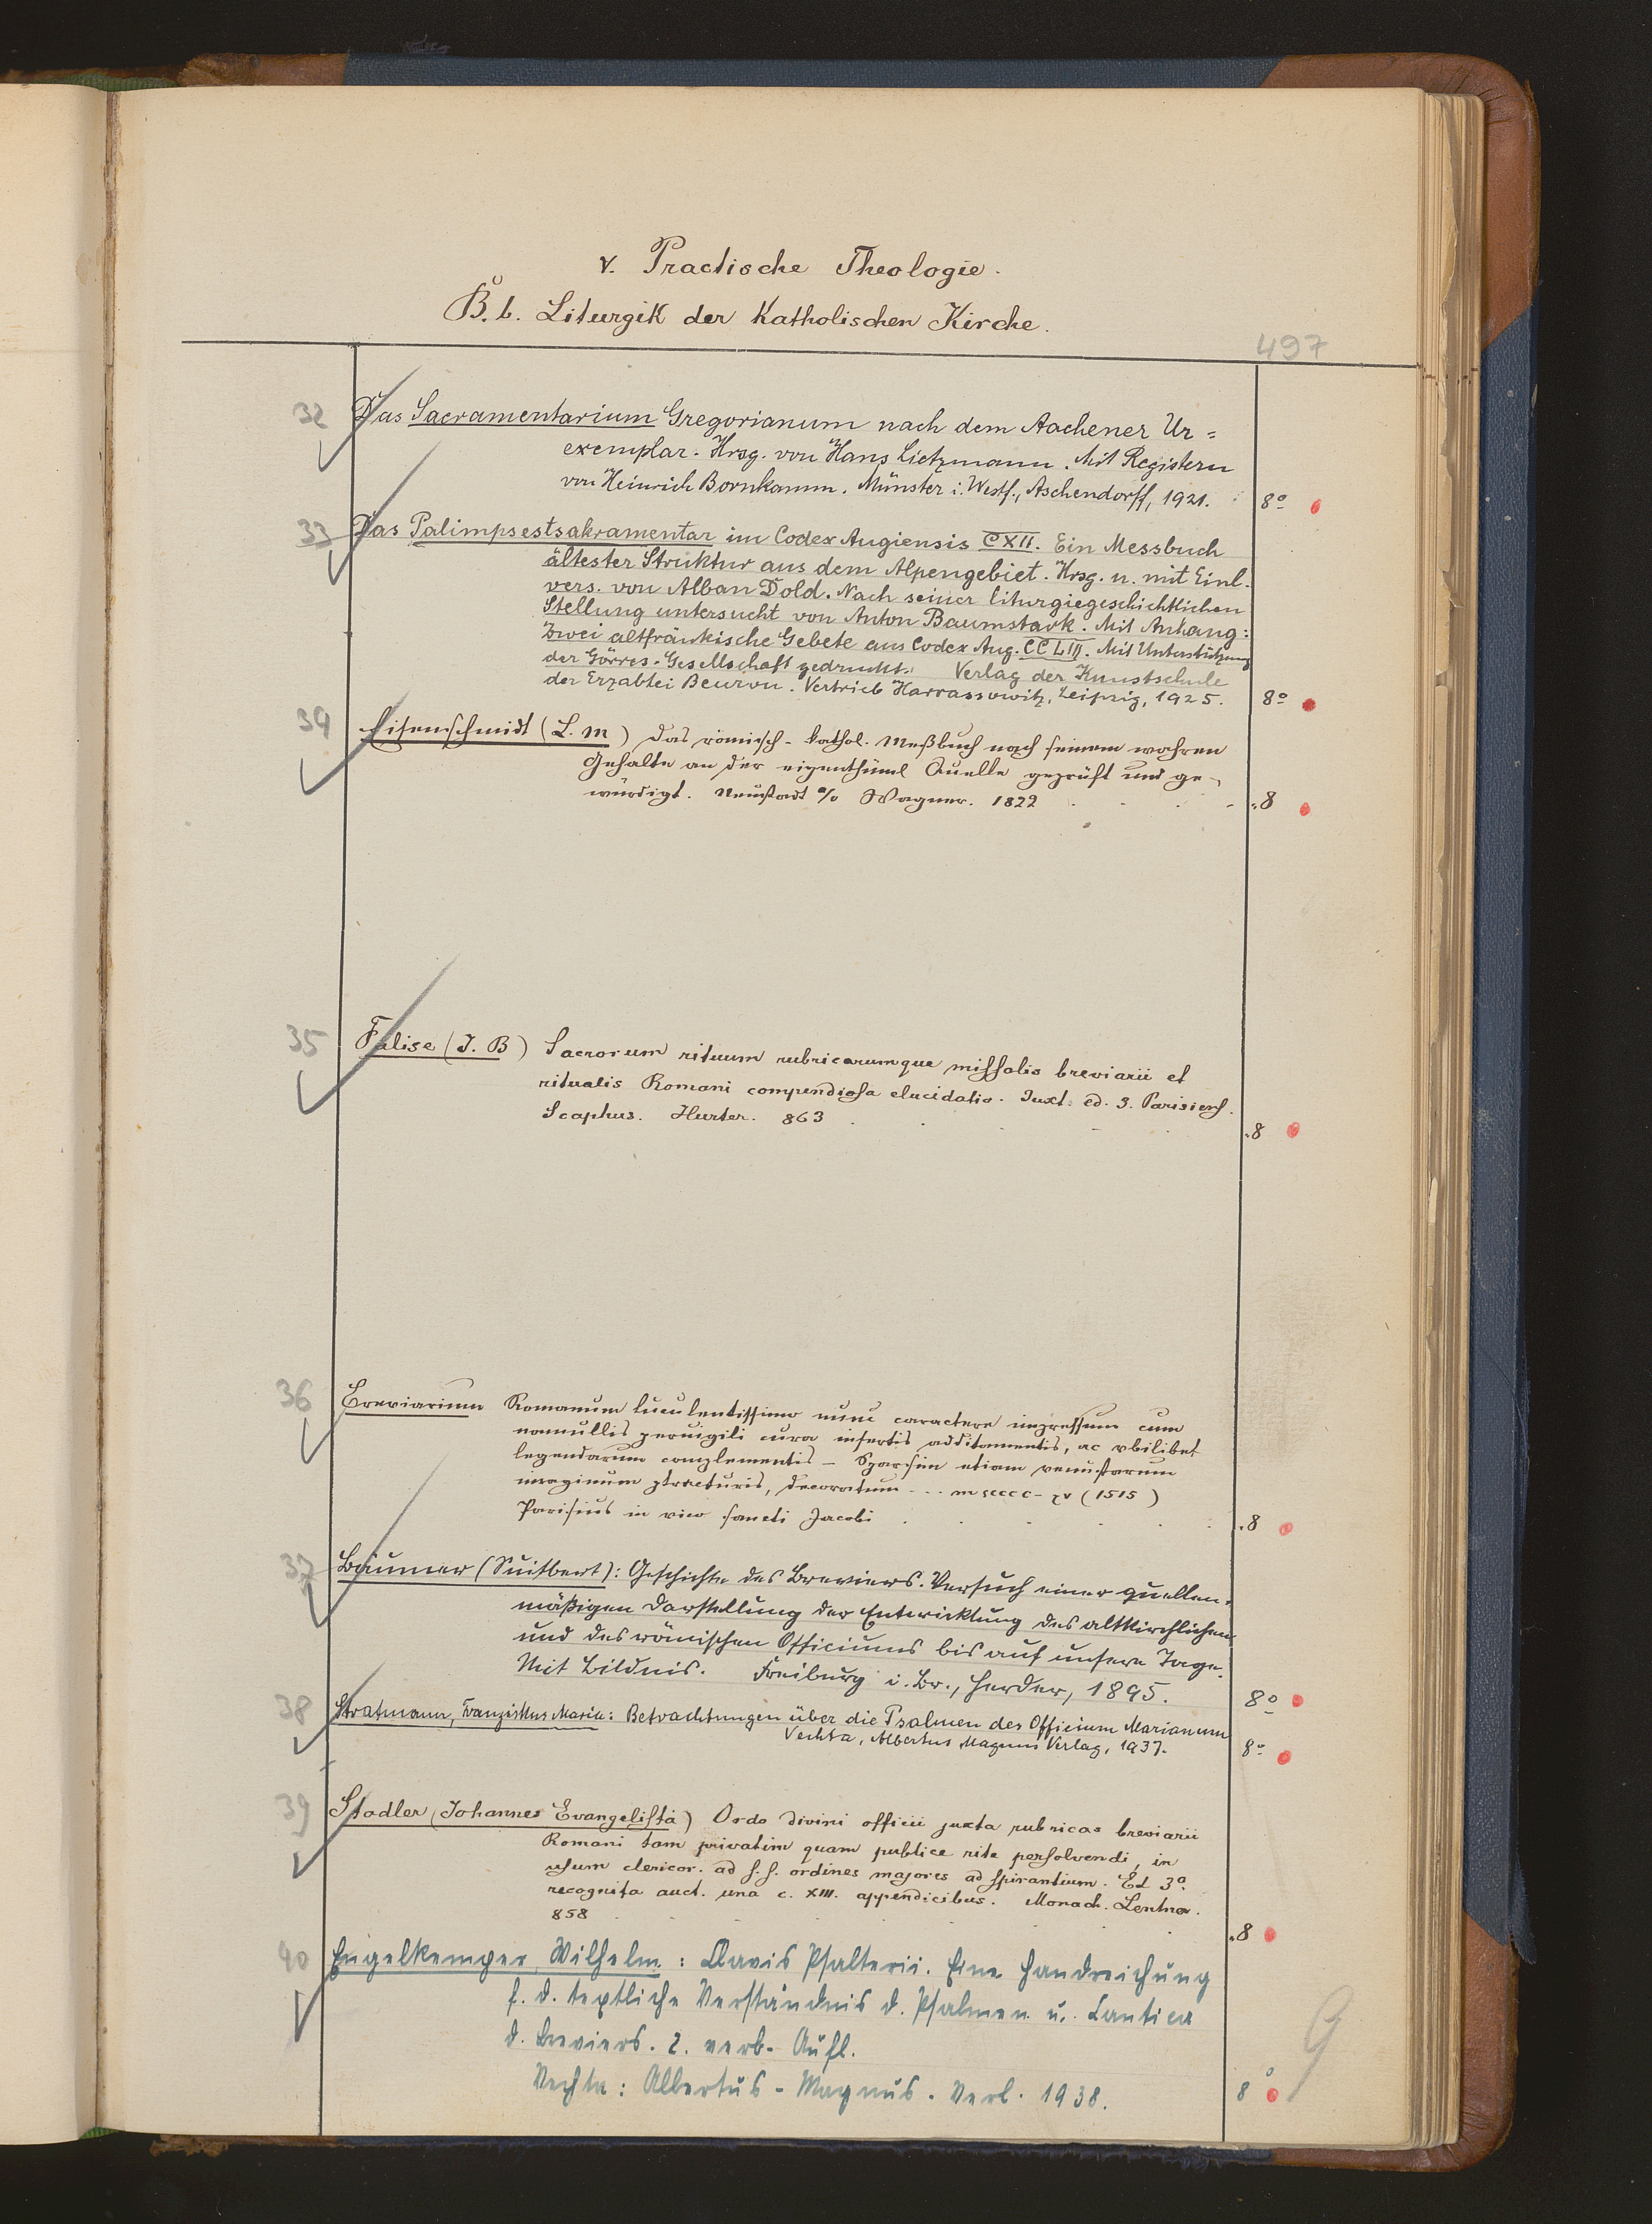 V. Practische Theologie.
B. b. Liturgik der Katholischen Kirche.
497
32 Das Sacramentarium Gregorianum nach dem Aachener Ur=
exemplar. Hrsg. von Hans Lietzmann. Mit Registern
von Heinrich Bornkamm. Münster i. Westf., Aschendorff, 1921. 8°
33 Das Palimpsestsakramentar im Codex Augiensis CXII. Ein Messbuch
ältester Struktur aus dem Alpengebiet. Hrsg. u. mit Einl.
vers. von Alban Dold. Nach seiner liturgiegeschichtlichen
Stellung untersucht von Anton Baumstark. Mit Anhang:
Zwei altfränkische Gebete aus Codex Aug. CCLIII. Mit Unterstützung
der Görres-Gesellschaft gedruckt. Verlag der Kunstschule
der Erzabtei Beuron. Vertrieb Harrassowitz, Leipzig, 1925. 8°
34 Eisenschmidt (L. M) Das römisch-kathol. Meßbuch nach seinem wahren
Gehalte an der eigenthüml Quelle geprüft und ge-
würdigt. Neustadt a/o Wagner. 1822 .8
35 Falise (J. B) Sacrorum rituum rubricarumque missalis breviarii et
ritualis Romani compendiosa elucidatio. Juxt. ed. 3. Parisiens.
Scaphus. Hurter. 863 .8
36 Breviarium Romanum luculentissimo nunc caractere impressum cum
nonnullis pervigili cura insertis additamentis, ac vbilibet
legendarum complementis - Sparsim etiam venustarum
imaginum ptracturis, decoratum ... m ccccc-xv (1515)
Parisius in vico sancti Jacobi .8
37 Bäumer (Suitbert): Geschichte des Breviers. Versuch einer quellen-
mäßigen Darstellung der Entwicklung des altkirchlichen
und des römischen Officiums bis auf unsere Tage.
Mit Bildnis. Freiburg i. Br., Herder, 1895. 8°
38 Stratmann, Franziskus Maria: Betrachtungen über die Psalmen des Officium Marianum
Vechta, Albertus Magnus Verlag, 1937. 8°
39 Stadler (Johannes Evangelista) Ordo divini officii juxta rubricas breviarii
Romani tam privatim quam publice rite persolvendi, in
usum clericor. ad s. s. ordines majores adspirantium. Ed 3a.
recognita auct. una c. XIII. appendicibus. Monach. Lentner.
858 .8
40 Engelkemper, Wilhelm: Clavis Psalterii. Eine Handreichung
f. d. textliche Verständnis d. Psalmen u. Cantica
d. Breviers. 2. verb. Aufl.
Vechta: Albertus-Magnus-Verl. 1938. 8°
9